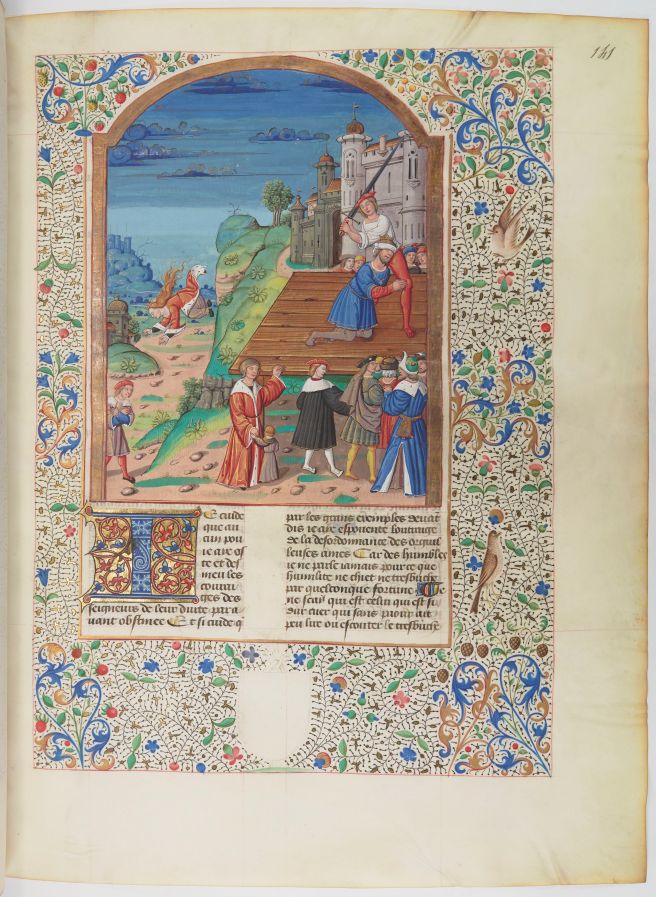 141
Je cuide
que au
cun pou
ie aye os
te et des
meu les
coura
ges des
seigneurs de leur durte par a
uant obstinee Et si cuide q
par les grans exemples deuāt
dis ie aye espouente loutrage
de la desordonnance des orguil
leuses ames Car des humbles
ie ne parle iamais pour ce que
humilite ne chiet ne tresbuche
par quelconque fortune Ie
ne scay qui est celui qui est si
dur cuer qui sans paour ait
peu lire ou escouter le tresbuche